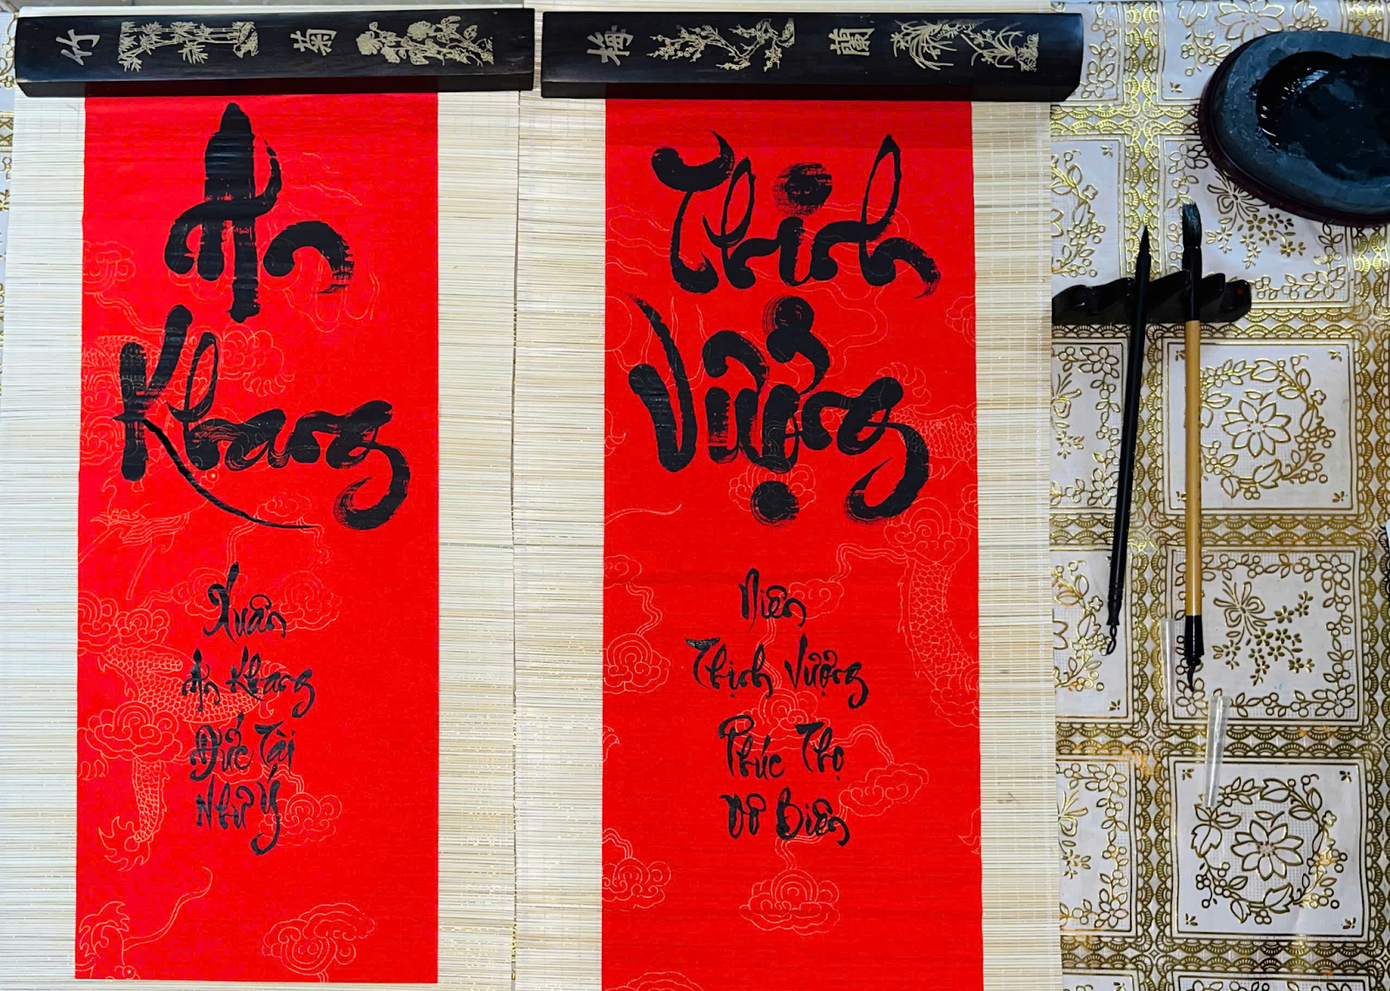 竹 菊
梅 蘭
An
Khang
Xuân
An Khang
Đức Tài
Như Ý
Thịnh
Vượng
Niên
Thịnh Vượng
Phúc Thọ
Vô Biên